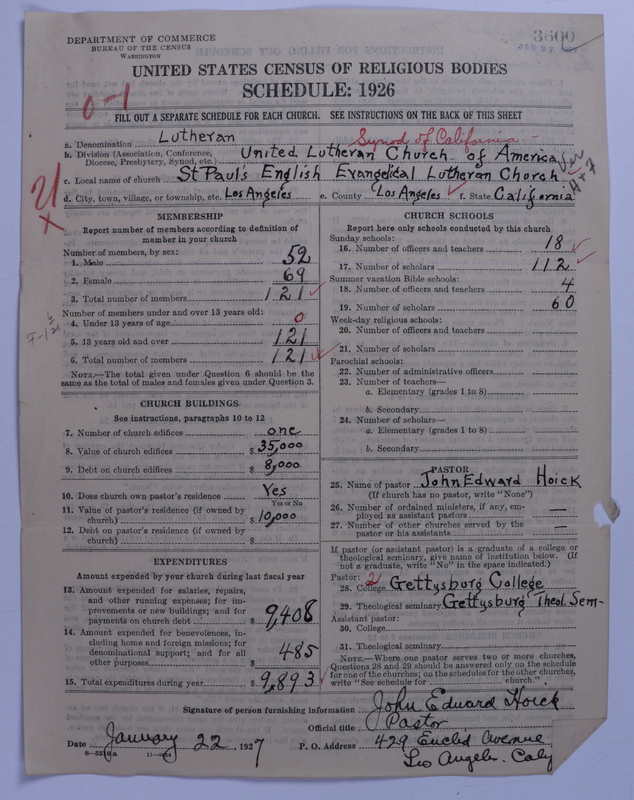 DEPARTMENT OF COMMERCE
BUREAU OF THE CENSUS
WASHINGTON
3600
JAN 27
UNITED STATES CENSUS OF RELIGIOUS BODIES
SCHEDULE: 1926
0-1
FILL OUT A SEPARATE SCHEDULE FOR EACH CHURCH. SEE INSTRUCTIONS ON THE BACK OF THIS SHEET
a. Denomination Lutheran Synod of California
b. Division (Association, Conference, Diocese, Presbytery, Synod, etc.) United Lutheran Church of America
c. Local name of church St Paul's English Evangelical Lutheran Church
d. City, town, village, or township, etc. Los Angeles e. County Los Angeles f. State California
21
x
MEMBERSHIP
Report number of members according to definition of
member in your church
Number of members, by sex:
1. Male 52
2. Female 69
3. Total number of members 121
Number of members under and over 13 years old:
4. Under 13 years of age 0
5. 13 years old and over 121
6. Total number of members 121
NOTE.—The total given under Question 6 should be the
same as the total of males and females given under Question 3.
CHURCH BUILDINGS
See instructions, paragraphs 10 to 12
7. Number of church edifices one
8. Value of church edifices $ 35,000
9. Debt on church edifices $ 8,000
10. Does church own pastor's residence Yes
Yes or No
11. Value of pastor's residence (if owned by
church) $ 10,000
12. Debt on pastor's residence (if owned by
church) $
EXPENDITURES
Amount expended by your church during last fiscal year
13. Amount expended for salaries, repairs,
and other running expenses; for im-
provements or new buildings; and for
payments on church debt $ 9,408
14. Amount expended for benevolences, in-
cluding home and foreign missions; for
denominational support; and for all
other purposes $ 485
15. Total expenditures during year $ 9,893
CHURCH SCHOOLS
Report here only schools conducted by this church
Sunday schools:
16. Number of officers and teachers 18
17. Number of scholars 112
Summer vacation Bible schools:
18. Number of officers and teachers 4
19. Number of scholars 60
Week-day religious schools:
20. Number of officers and teachers
21. Number of scholars
Parochial schools:
22. Number of administrative officers
23. Number of teachers—
a. Elementary (grades 1 to 8)
b. Secondary
24. Number of scholars—
a. Elementary (grades 1 to 8)
b. Secondary
PASTOR
25. Name of pastor John Edward Hoick
(If church has no pastor, write "None")
26. Number of ordained ministers, if any, em-
ployed as assistant pastors —
27. Number of other churches served by the
pastor or his assistants —
If pastor (or assistant pastor) is a graduate of a college or
theological seminary, give name of institution below. (If
not a graduate, write "No" in the space indicated.)
Pastor: 2
28. College Gettysburg College
29. Theological seminary Gettysburg Theol. Sem-
Assistant pastor:
30. College
31. Theological seminary
NOTE.—Where one pastor serves two or more churches,
Questions 28 and 29 should be answered only on the schedule
for one of the churches; on the schedules for the other churches,
write "See schedule for church."
Signature of person furnishing information John Edward Hoick
Official title Pastor
Date January 22, 1927 P. O. Address 429 Euclid Avenue
8-5518a Los Angeles. Caly